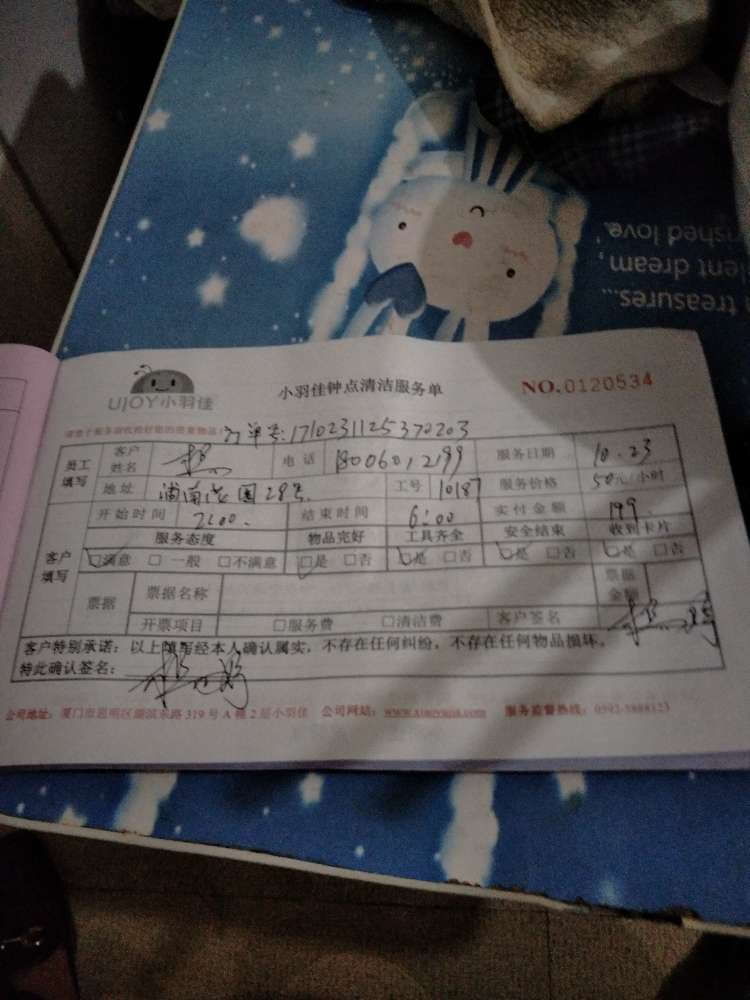 ...ished love.
...ient dream,
t treasures...
UJOY小羽佳
小羽佳钟点清洁服务单
NO.0120534
订单号:1710231125370203
员工填写 客户姓名 电话 服务日期 10.23
地址 浦南花园28号 工号 10187 服务价格 50元/小时
开始时间 2:00 结束时间 6:00 实付金额 199
客户填写 服务态度 物品完好 工具齐全 安全结束 收到卡片
□满意 □一般 □不满意 □是 □否 □是 □否 □是 □否 □是 □否
票据 票据名称 票据金额
开票项目 □服务费 □清洁费 客户签名
客户特别承诺:以上填写经本人确认属实,不存在任何纠纷,不存在任何物品损坏。
特此确认签名:
公司地址:厦门市思明区湖滨东路319号A幢2层小羽佳 公司网站: 服务监督热线: